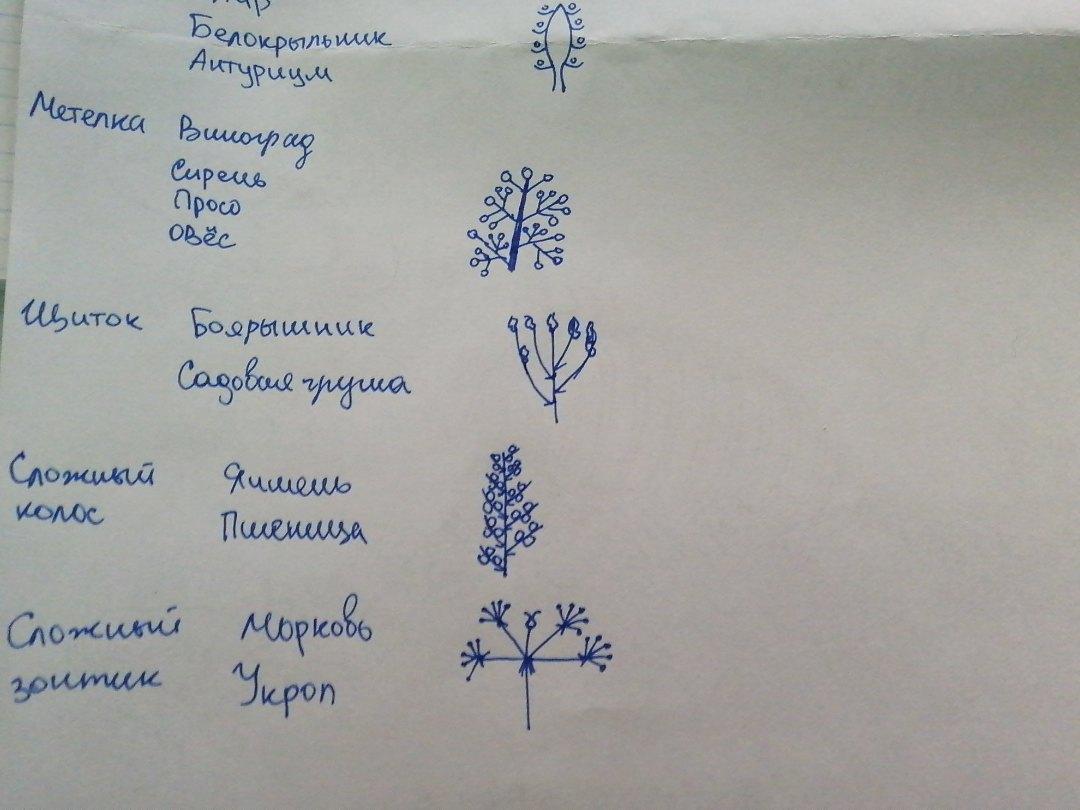 Белокрыльник
Антуриум
Метелка Виноград
Сирень
Просо
овёс
Щиток Боярышник
Садовая груша
Сложный Ячмень
колос Пшеница
Сложный Морковь
зонтик Укроп